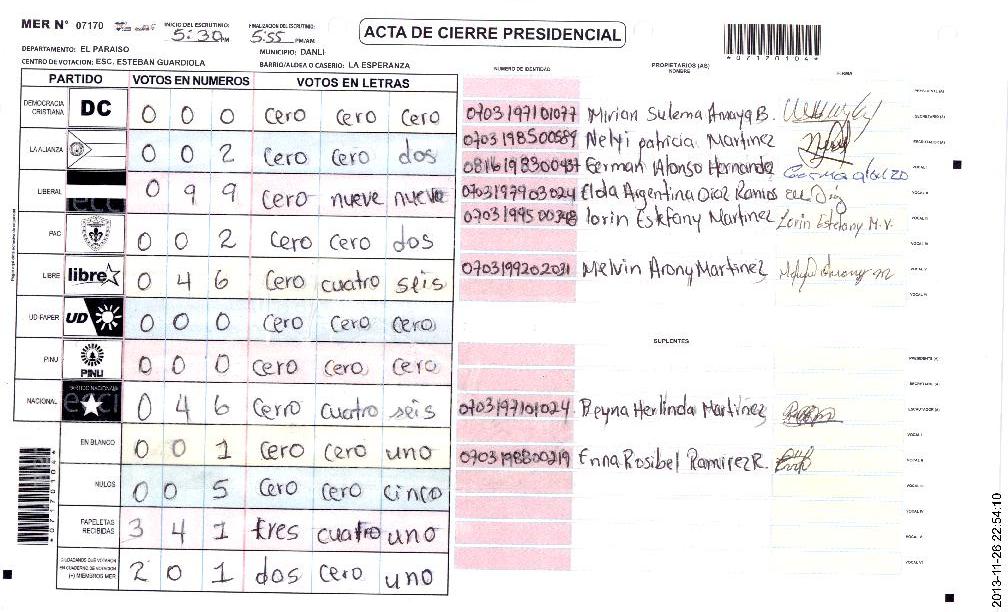 MER N° 07170
INICIO DEL ESCRUTINIO: 5:30 PM
FINALIZACION DEL ESCRUTINIO: 5:55 PM/AM
ACTA DE CIERRE PRESIDENCIAL
*07170104*
DEPARTAMENTO: EL PARAISO
MUNICIPIO: DANLI
CENTRO DE VOTACION: ESC. ESTEBAN GUARDIOLA
BARRIO/ALDEA O CASERIO: LA ESPERANZA
PARTIDO VOTOS EN NUMEROS VOTOS EN LETRAS
DEMOCRACIA CRISTIANA DC 0 0 0 cero cero cero
LA ALIANZA 0 0 2 cero cero dos
LIBERAL 0 9 9 cero nueve nueve
PAC 0 0 2 cero cero dos
LIBRE libre 0 4 6 cero cuatro seis
UD-FAPER UD 0 0 0 cero cero cero
PINU PINU 0 0 0 cero cero cero
NACIONAL PARTIDO NACIONAL 0 4 6 cerro cuatro seis
EN BLANCO 0 0 1 cero cero uno
NULOS 0 0 5 cero cero cinco
PAPELETAS RECIBIDAS 3 4 1 tres cuatro uno
CIUDADANOS QUE VOTARON EN CUADERNO DE VOTACION (+) MIEMBROS MER 2 0 1 dos cero uno
NUMERO DE IDENTIDAD
PROPIETARIOS (AS) NOMBRE
FIRMA
0703197101077 Mirian Sulema Amaya B.
0703198500589 Nelyi patricia Martinez
0816198300437 German Alonso Hernandz
0703197903024 Elda Argentina Diaz Ramos
0703199500348 lorin Estefany Martinez Lorin Estefany M.V.
0703199202031 Melvin Arony Martinez
SUPLENTES
0703197101024 Reyna Herlinda Martinez
0703198800219 Enna Rosibel Ramirez R.
*07170104*
2013-11-26 22:54:10